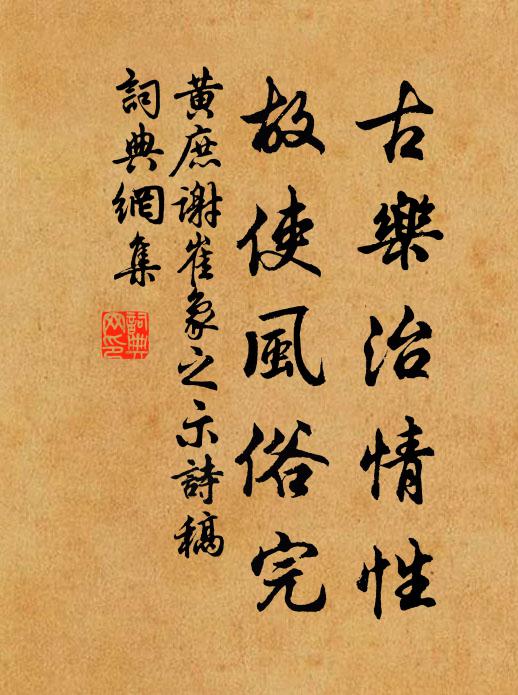 古樂治情性
故使風俗完
黃庶謝崔象之示詩稿
詞典網集
詞典網印